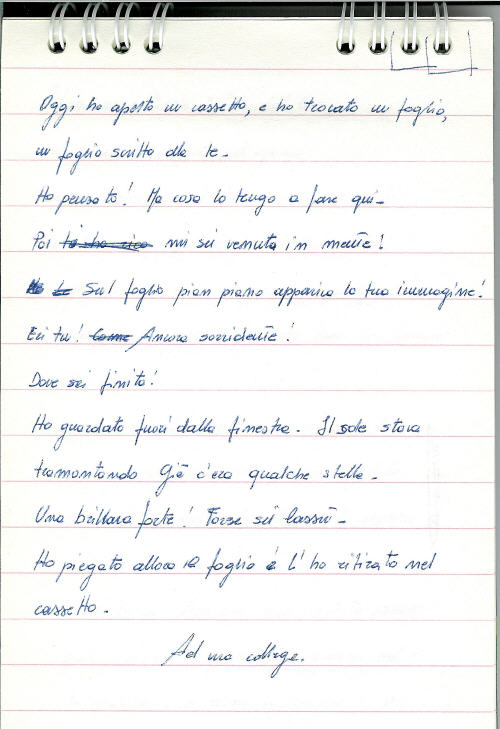 Oggi ho aperto un cassetto, e ho trovato un foglio,
un foglio scritto da te.
Ho pensato! Ma cosa lo tengo a fare qui.
Poi ti ho rico mi sei venuta in mente!
Sul foglio pian piano appariva la tua immagine!
Eri tu! Come Ancora sorridente!
Dove sei finita!
Ho guardato fuori dalla finestra. Il sole stava
tramontando Già c'era qualche stella.
Una brillava forte! Forse sei lassù.
Ho piegato allora il foglio e l'ho ritirato nel
cassetto.
Ad una collega.